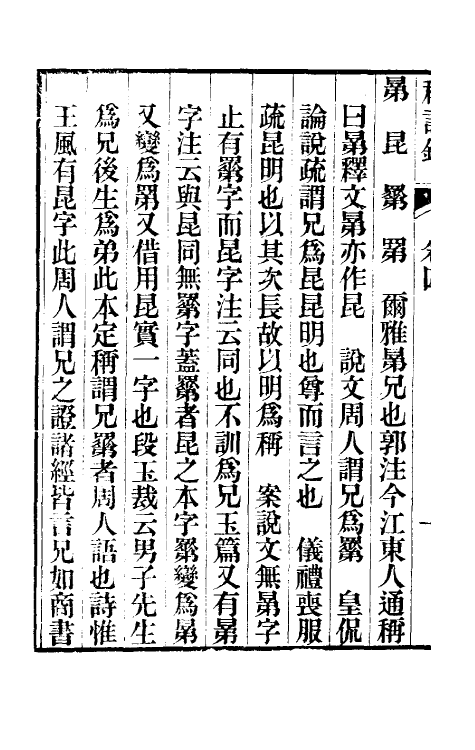 晜　昆　𥊽　罤　爾雅晜兄也郭注今江東人通稱
曰晜釋文晜亦作昆　說文周人謂兄爲𥊽　皇侃
論說疏謂兄爲昆昆明也尊而言之也　儀禮喪服
疏昆明也以其次長故以明爲稱　案說文無晜字
止有𥊽字而昆字注云同也不訓爲兄玉篇又有晜
字注云與昆同無𥊽字蓋𥊽者昆之本字𥊽變爲晜
又變爲罤又借用昆實一字也段玉裁云男子先生
爲兄後生爲弟此本定稱謂兄𥊽者周人語也詩惟
王風有昆字此周人謂兄之證諸經皆言兄如商書